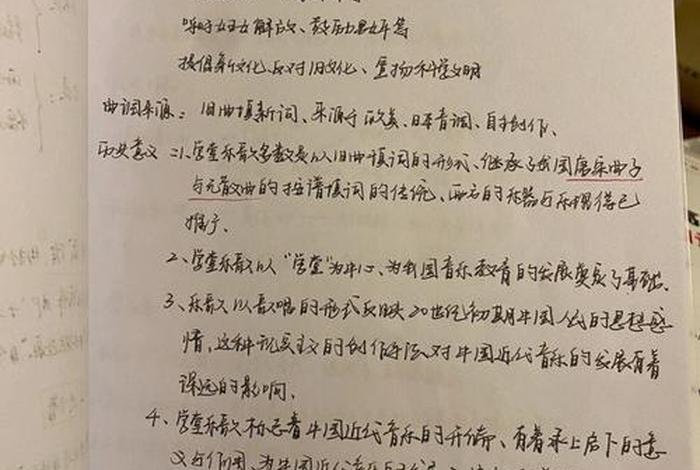 呼吁妇女解放、鼓励男女平等
提倡新文化、反对旧文化、宣扬科学文明
曲调来源：旧曲填新词、来源于欧美、日本音调、自主创作、
历史意义：1、学堂乐歌多数是以旧曲填词的形式、继承了我国唐宋曲子
与元散曲的按谱填词的传统、西方的乐器与乐理得已
推广、
2、学堂乐歌以“学堂”为中心、为我国音乐教育的发展奠定了基础、
3、乐歌以歌唱的形式反映20世纪初期中国人民的思想感
情、这种现实主义的创作手法、对中国近代音乐的发展有着
深远的影响、
4、学堂乐歌标志着中国近代音乐的开端、有着承上启下的意
义与作用、为中国近代音乐的